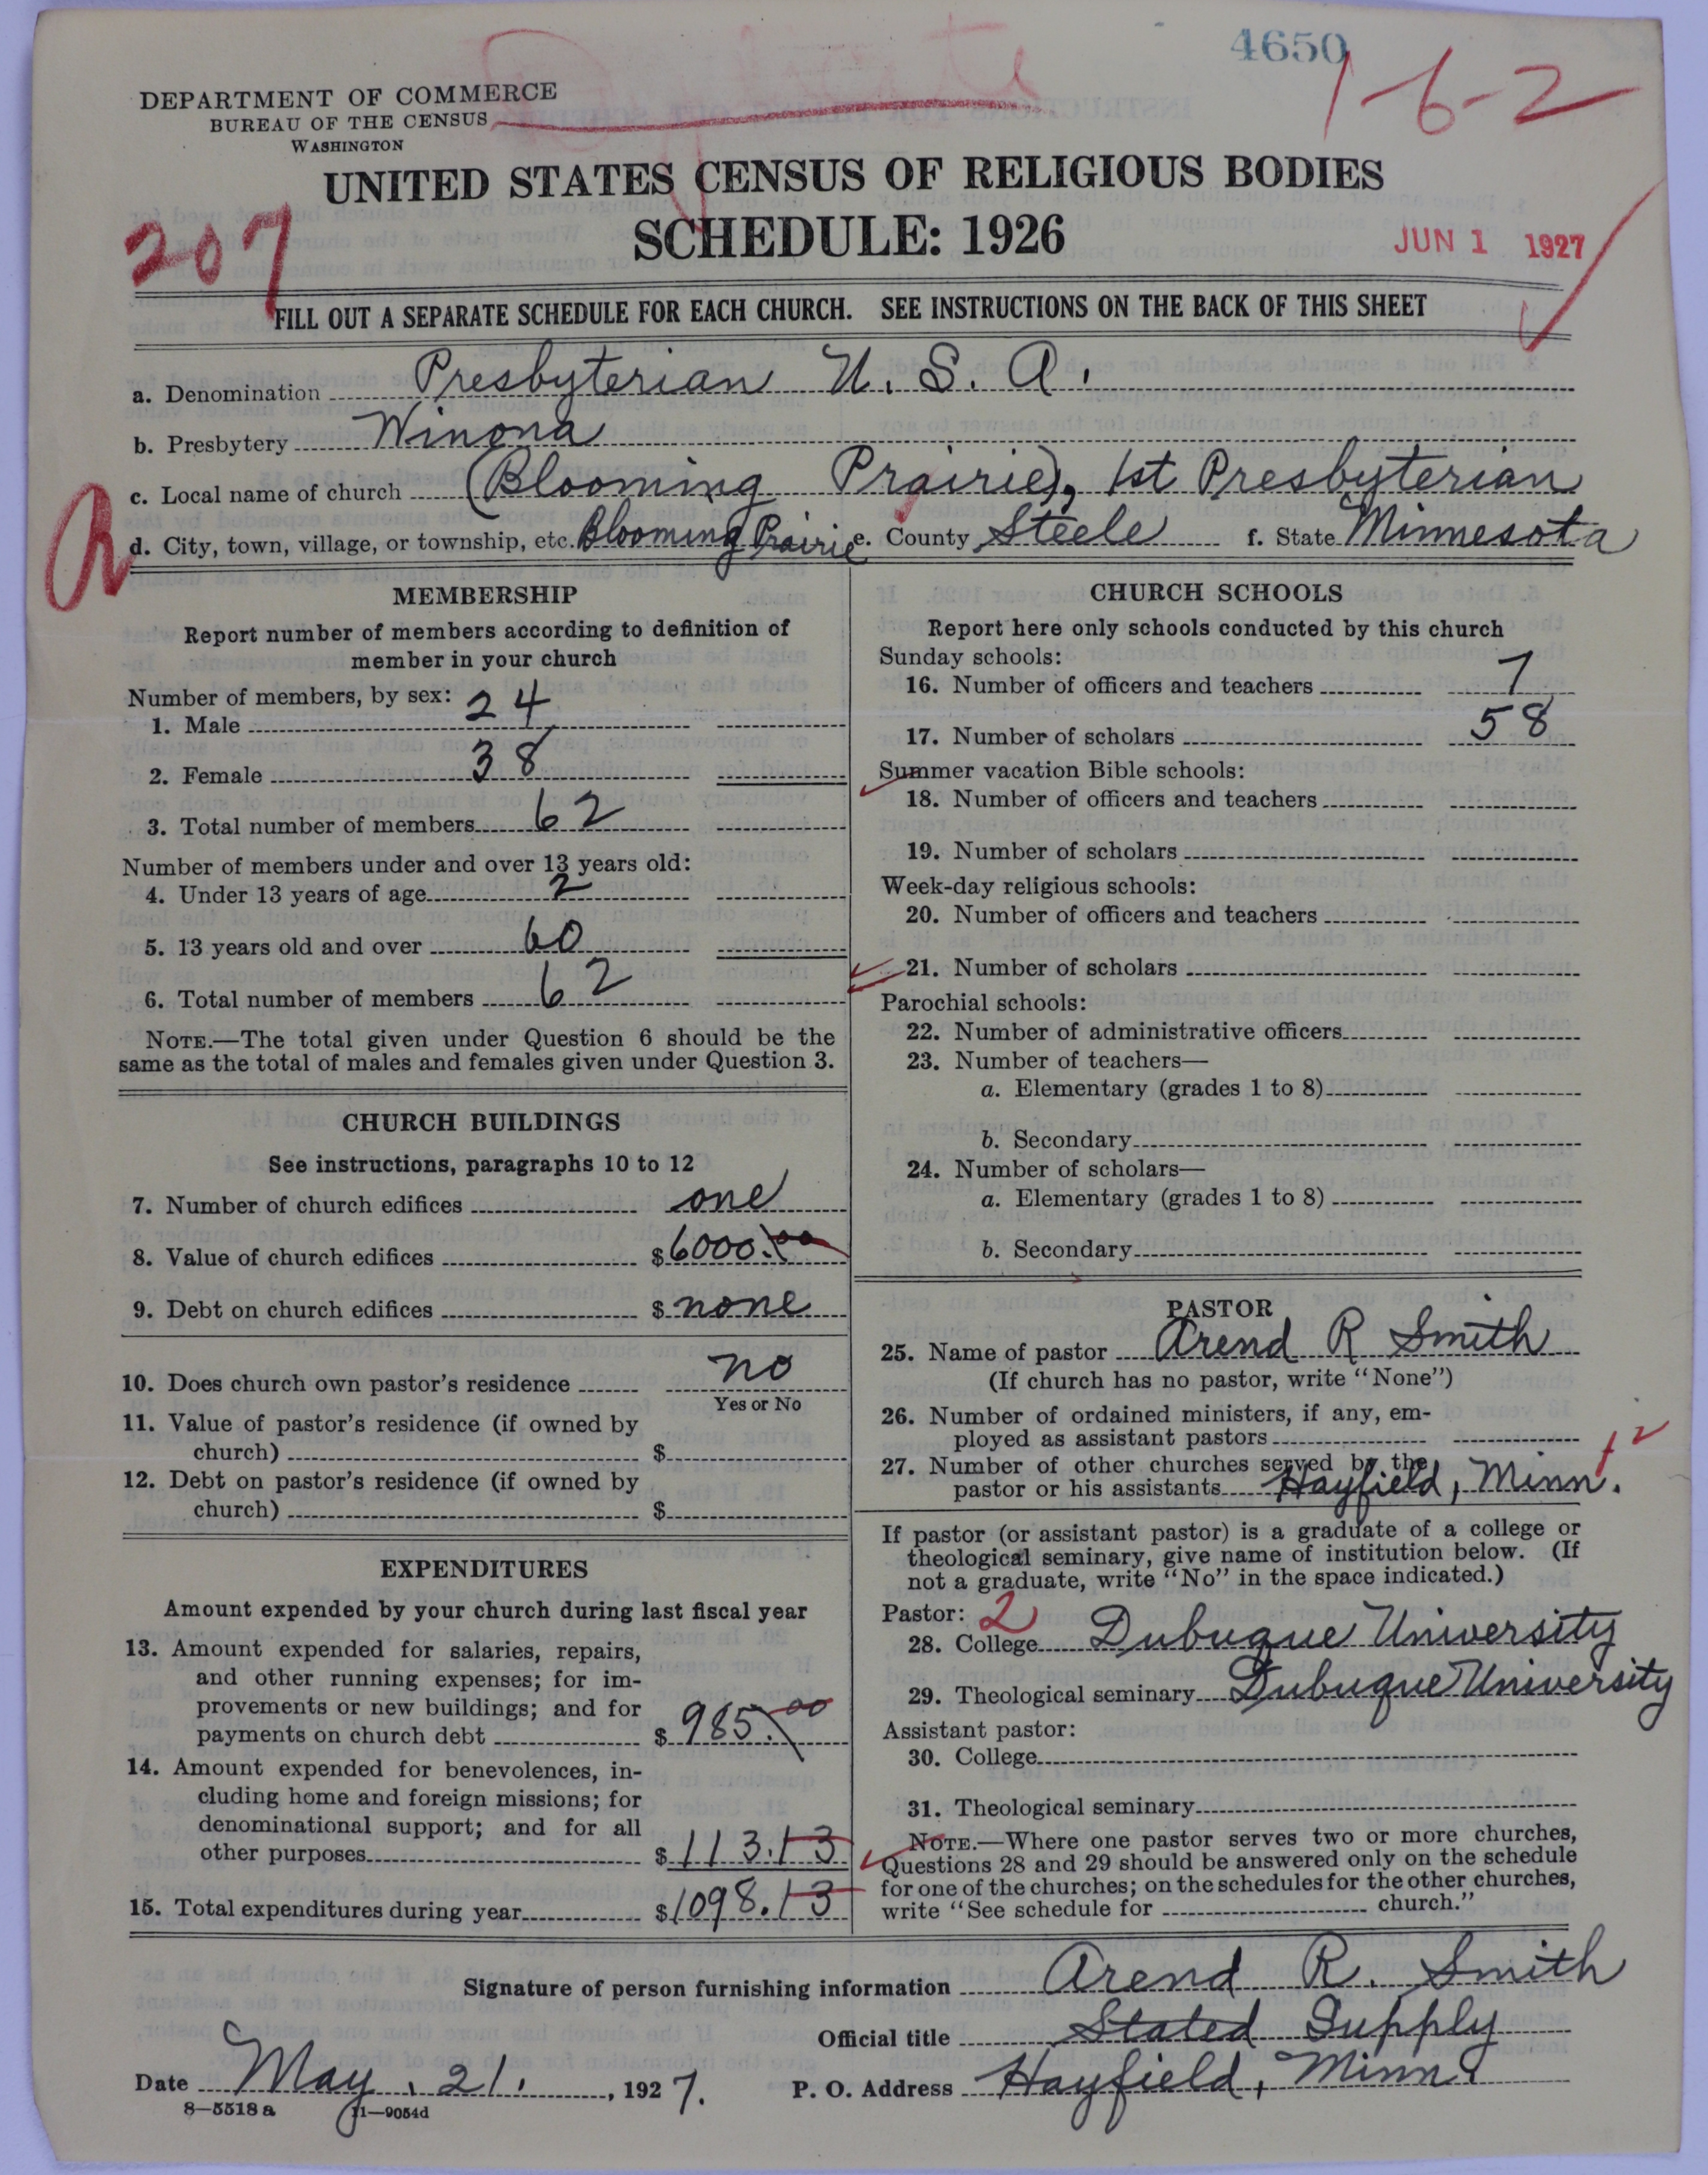 4650
1-6-2
DEPARTMENT OF COMMERCE
BUREAU OF THE CENSUS
WASHINGTON
UNITED STATES CENSUS OF RELIGIOUS BODIES
SCHEDULE: 1926
207
JUN 1 1927
FILL OUT A SEPARATE SCHEDULE FOR EACH CHURCH. SEE INSTRUCTIONS ON THE BACK OF THIS SHEET
a. Denomination Presbyterian U. S. A.
b. Presbytery Winona
c. Local name of church (Blooming Prairie), 1st Presbyterian
d. City, town, village, or township, etc. Blooming Prairie e. County Steele f. State Minnesota
MEMBERSHIP
Report number of members according to definition of
member in your church
Number of members, by sex:
1. Male 24
2. Female 38
3. Total number of members 62
Number of members under and over 13 years old:
4. Under 13 years of age 2
5. 13 years old and over 60
6. Total number of members 62
NOTE.—The total given under Question 6 should be the
same as the total of males and females given under Question 3.
CHURCH BUILDINGS
See instructions, paragraphs 10 to 12
7. Number of church edifices one
8. Value of church edifices $6000.00
9. Debt on church edifices $ none
10. Does church own pastor's residence no
Yes or No
11. Value of pastor's residence (if owned by
church) $
12. Debt on pastor's residence (if owned by
church) $
EXPENDITURES
Amount expended by your church during last fiscal year
13. Amount expended for salaries, repairs,
and other running expenses; for im-
provements or new buildings; and for
payments on church debt $ 985.00
14. Amount expended for benevolences, in-
cluding home and foreign missions; for
denominational support; and for all
other purposes $ 113.13
15. Total expenditures during year $1098.13
CHURCH SCHOOLS
Report here only schools conducted by this church
Sunday schools:
16. Number of officers and teachers 7
17. Number of scholars 58
Summer vacation Bible schools:
18. Number of officers and teachers
19. Number of scholars
Week-day religious schools:
20. Number of officers and teachers
21. Number of scholars
Parochial schools:
22. Number of administrative officers
23. Number of teachers—
a. Elementary (grades 1 to 8)
b. Secondary
24. Number of scholars—
a. Elementary (grades 1 to 8)
b. Secondary
PASTOR
25. Name of pastor Arend R Smith
(If church has no pastor, write "None")
26. Number of ordained ministers, if any, em-
ployed as assistant pastors
27. Number of other churches served by the
pastor or his assistants Hayfield, Minn.
If pastor (or assistant pastor) is a graduate of a college or
theological seminary, give name of institution below. (If
not a graduate, write "No" in the space indicated.)
Pastor: 2
28. College Dubuque University
29. Theological seminary Dubuque University
Assistant pastor:
30. College
31. Theological seminary
NOTE.—Where one pastor serves two or more churches,
Questions 28 and 29 should be answered only on the schedule
for one of the churches; on the schedules for the other churches,
write "See schedule for church."
Signature of person furnishing information Arend R. Smith
Official title Stated Supply
Date May. 21. , 1927. P. O. Address Hayfield, Minn.
8—5518a 11—9054d